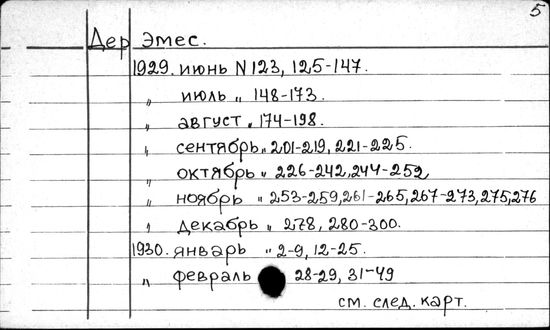 5
Дер Эмес.
1929. июнь N 123, 125-147.
„ июль „ 148-173.
„ август „ 174-198.
„ сентябрь „ 201-219, 221-225.
„ октябрь „ 226-242, 244-252,
„ ноябрь „ 253-259, 261-265, 267-273, 275, 276
„ декабрь „ 278, 280-300.
1930. январь „ 2-9, 12-25.
„ февраль 28-29, 31-49
см. след. карт.